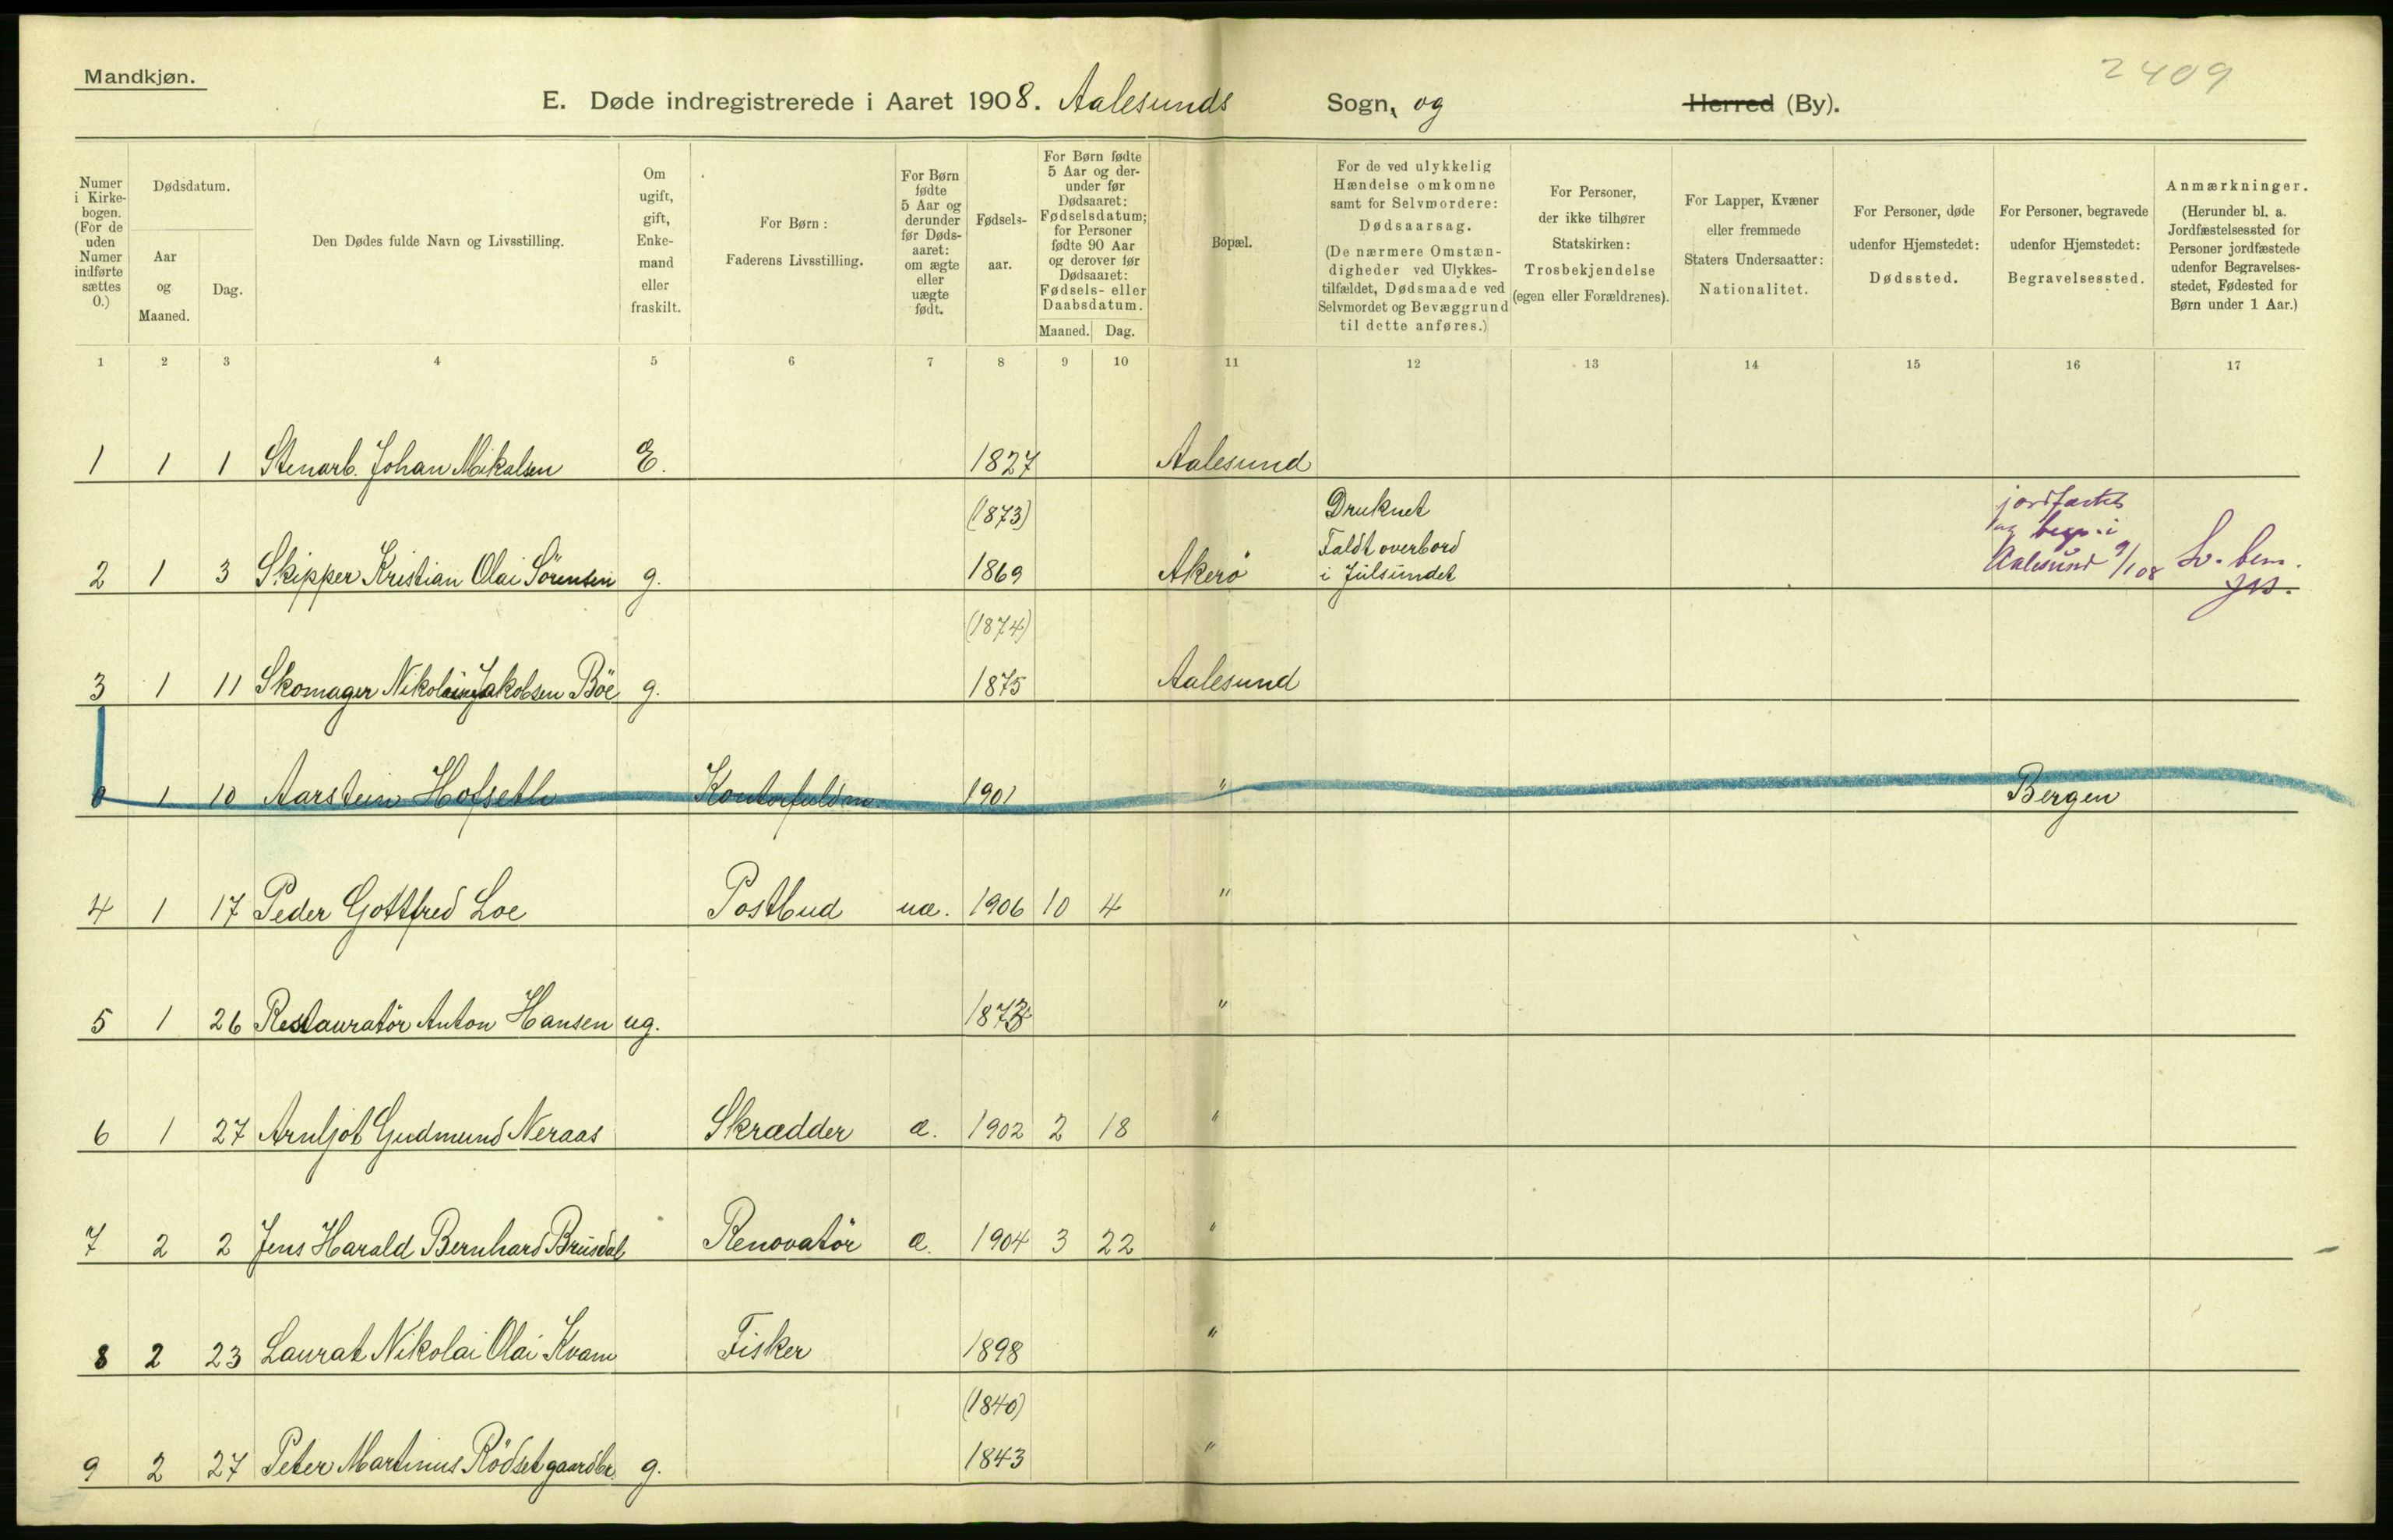 Mandkjøn.
2409
E. Døde indregistrerede i Aaret 1908. Aalesunds Sogn, og Herred (By).
Numer i Kirke-bogen. (For de uden Numer indførte sættes 0.)
Dødsdatum.
Aar og Maaned.
Dag.
Den Dødes fulde Navn og Livsstilling.
Om ugift, gift, Enke-mand eller fraskilt.
For Børn: Faderens Livsstilling.
For Børn fødte 5 Aar og derunder før Døds-aaret: om ægte eller uægte født.
Fødsels-aar.
For Børn fødte 5 Aar og der-under før Dødsaaret: Fødselsdatum; for Personer fødte 90 Aar og derover før Dødsaaret: Fødsels- eller Daabsdatum.
Maaned. Dag.
Bopæl.
For de ved ulykkelig Hændelse omkomne samt for Selvmordere: Dødsaarsag. (De nærmere Omstæn-digheder ved Ulykkes-tilfældet, Dødsmaade ved Selvmordet og Bevæggrund til dette anføres.)
For Personer, der ikke tilhører Statskirken: Trosbekjendelse (egen eller Forældrenes).
For Lapper, Kvæner eller fremmede Staters Undersaatter: Nationalitet.
For Personer, døde udenfor Hjemstedet: Dødssted.
For Personer, begravede udenfor Hjemstedet: Begravelsessted.
Anmærkninger. (Herunder bl. a. Jordfæstelsessted for Personer jordfæstede udenfor Begravelses-stedet, Fødested for Børn under 1 Aar.)
1 2 3 4 5 6 7 8 9 10 11 12 13 14 15 16 17
1 1 1 Stenarb. Johan Mikalsen E. 1827 Aalesund
(1873) Druknet jordfæstet
Faldt overbord og begr. i
2 1 3 Skipper Kristian Olai Sörensen g. 1869 Akerö i Julsundet Aalesund 9/1 08
(1874)
3 1 11 Skomager Nikolai Jakobsen Böe g. 1875 Aalesund
0 1 10 Aarstein Hofseth Kontorfuldm. 1901 " Bergen
4 1 17 Peder Gottfred Loe Postbud uæ. 1906 10 4 "
5 1 26 Restauratör Anton Hansen ug. "
6 1 27 Arnljot Gudmund Neraas Skrædder æ. 1902 2 18 "
7 2 2 Jens Harald Bernhard Brusdal Renovatör æ. 1904 3 22 "
8 2 23 Laurat Nikolai Olai Kvam Fisker 1898 "
(1840)
9 2 27 Peter Martinus Rödset gaardbr. g. 1843 "